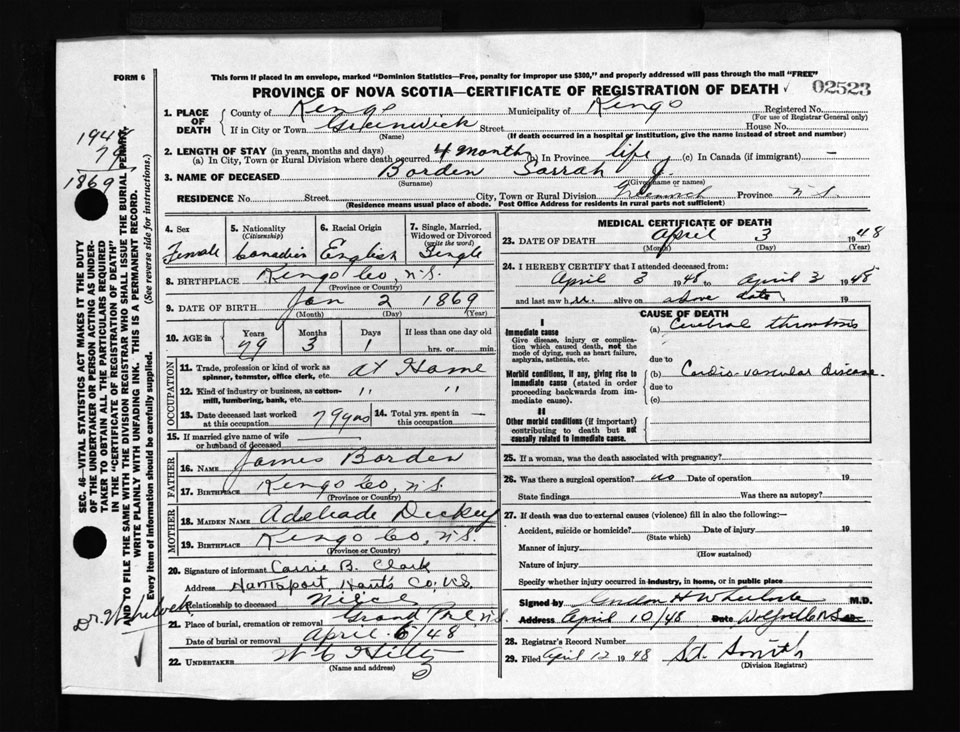 FORM 6
This form if placed in an envelope, marked "Dominion Statistics—Free, penalty for improper use $300," and properly addressed will pass through the mail "FREE"
PROVINCE OF NOVA SCOTIA—CERTIFICATE OF REGISTRATION OF DEATH
02523
1. PLACE OF DEATH
County of Kings Municipality of Kings Registered No.
(For use of Registrar General only)
If in City or Town Greenwich Street House No.
(Name) (If death occurred in a hospital or institution, give the name instead of street and number)
2. LENGTH OF STAY (in years, months and days)
(a) In City, Town or Rural Division where death occurred 4 months (b) In Province life (c) In Canada (if immigrant) —
3. NAME OF DECEASED Borden Sarrah J.
(Surname) (Given name or names)
RESIDENCE No. Street City, Town or Rural Division Greenwich Province N.S.
(Residence means usual place of abode. Post Office Address for residents in rural parts not sufficient)
4. Sex
Female
5. Nationality
(Citizenship)
Canadian
6. Racial Origin
English
7. Single, Married, Widowed or Divorced
(write the word)
Single
8. BIRTHPLACE Kings Co, N.S.
(Province or Country)
9. DATE OF BIRTH Jan 2 1869
(Month) (Day) (Year)
10. AGE in Years Months Days If less than one day old
79 3 1 hrs. or min.
OCCUPATION
11. Trade, profession or kind of work as spinner, teamster, office clerk, etc. At Home
12. Kind of industry or business, as cotton-mill, lumbering, bank, etc. " "
13. Date deceased last worked at this occupation 79 yrs 14. Total yrs. spent in this occupation —
15. If married give name of wife or husband of deceased
FATHER
16. NAME James Borden
17. BIRTHPLACE Kings Co, N.S.
(Province or Country)
MOTHER
18. MAIDEN NAME Adeliade Dickey
19. BIRTHPLACE Kings Co, N.S.
(Province or Country)
20. Signature of informant Carrie B. Clark
Address Hantsport, Hants Co, N.S.
Relationship to deceased Niece
21. Place of burial, cremation or removal Grand Pré, N.S.
Date of burial or removal April 6/48
22. UNDERTAKER W C
(Name and address)
MEDICAL CERTIFICATE OF DEATH
23. DATE OF DEATH April 3 1948
(Month) (Day) (Year)
24. I HEREBY CERTIFY that I attended deceased from:
April 3 1948 to April 3 1948
and last saw her alive on above date 19
CAUSE OF DEATH
I
Immediate cause
Give disease, injury or complication which caused death, not the mode of dying, such as heart failure, asphyxia, asthenia, etc.
(a) Cerebral thrombosis
due to
Morbid conditions, if any, giving rise to immediate cause (stated in order proceeding backwards from immediate cause).
(b) Cardio-vascular disease
due to
(c)
II
Other morbid conditions (if important) contributing to death but not causally related to immediate cause.
25. If a woman, was the death associated with pregnancy?
26. Was there a surgical operation? no Date of operation 19
State findings Was there an autopsy?
27. If death was due to external causes (violence) fill in also the following:—
Accident, suicide or homicide? Date of injury 19
(State which)
Manner of injury
(How sustained)
Nature of injury
Specify whether injury occurred in industry, in home, or in public place
Signed by Gordon H Wheelock M.D.
Address April 10/48 Date Wolfville N.S.
28. Registrar's Record Number
29. Filed April 12 1948 Smith
(Division Registrar)
1948
79
1869
SEC. 46—VITAL STATISTICS ACT MAKES IT THE DUTY
OF THE UNDERTAKER OR PERSON ACTING AS UNDER-
TAKER TO OBTAIN ALL THE PARTICULARS REQUIRED
IN THE "CERTIFICATE OF REGISTRATION OF DEATH"
AND TO FILE THE SAME WITH THE DIVISION REGISTRAR WHO SHALL ISSUE THE BURIAL PERMIT.
WRITE PLAINLY WITH UNFADING INK. THIS IS A PERMANENT RECORD.
Every item of information should be carefully supplied. (See reverse side for instructions.)
Dr. Wheelock